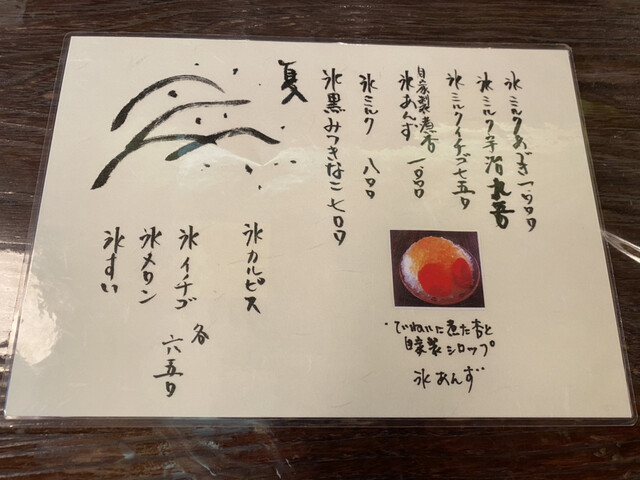 氷ミルクあずき 一、〇〇〇
氷ミルク宇治
氷ミルクイチゴ 七五〇
自家製煮杏
氷あんず 一、〇〇〇
氷ミルク 六〇〇
氷黒みつきなこ 七〇〇
夏
氷カルピス
氷イチゴ
氷メロン
氷すい
各 六五〇
・ていねいに煮た杏と
自家製シロップ
氷あんず